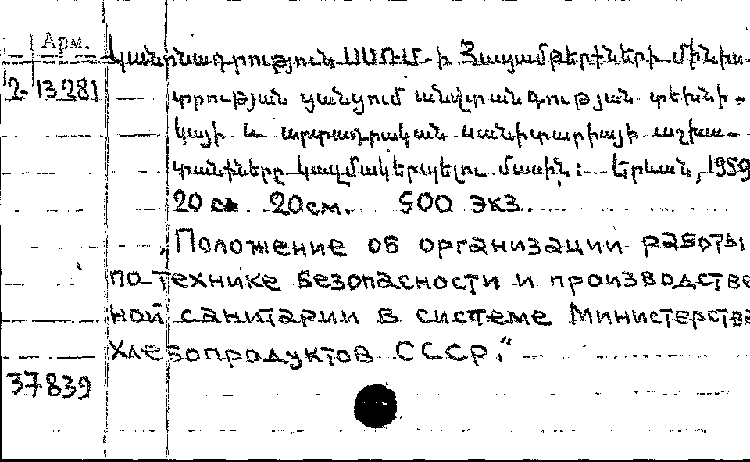 Арм.
Կանոնադրություն ՍՍՌՄ-ի Հացամթերքների մինիս-
2-13281 տրության ցանցում անվտանգության տեխնի-
կայի և արտադրական սանիտարիայի աշխա-
տանքները կազմակերպելու մասին: Երևան, 1959
20 см. 500 экз.
„Положение об организации работы
по технике безопасности и производстве
ной санитарии в системе Министерства
хлебопродуктов СССР.“
37839